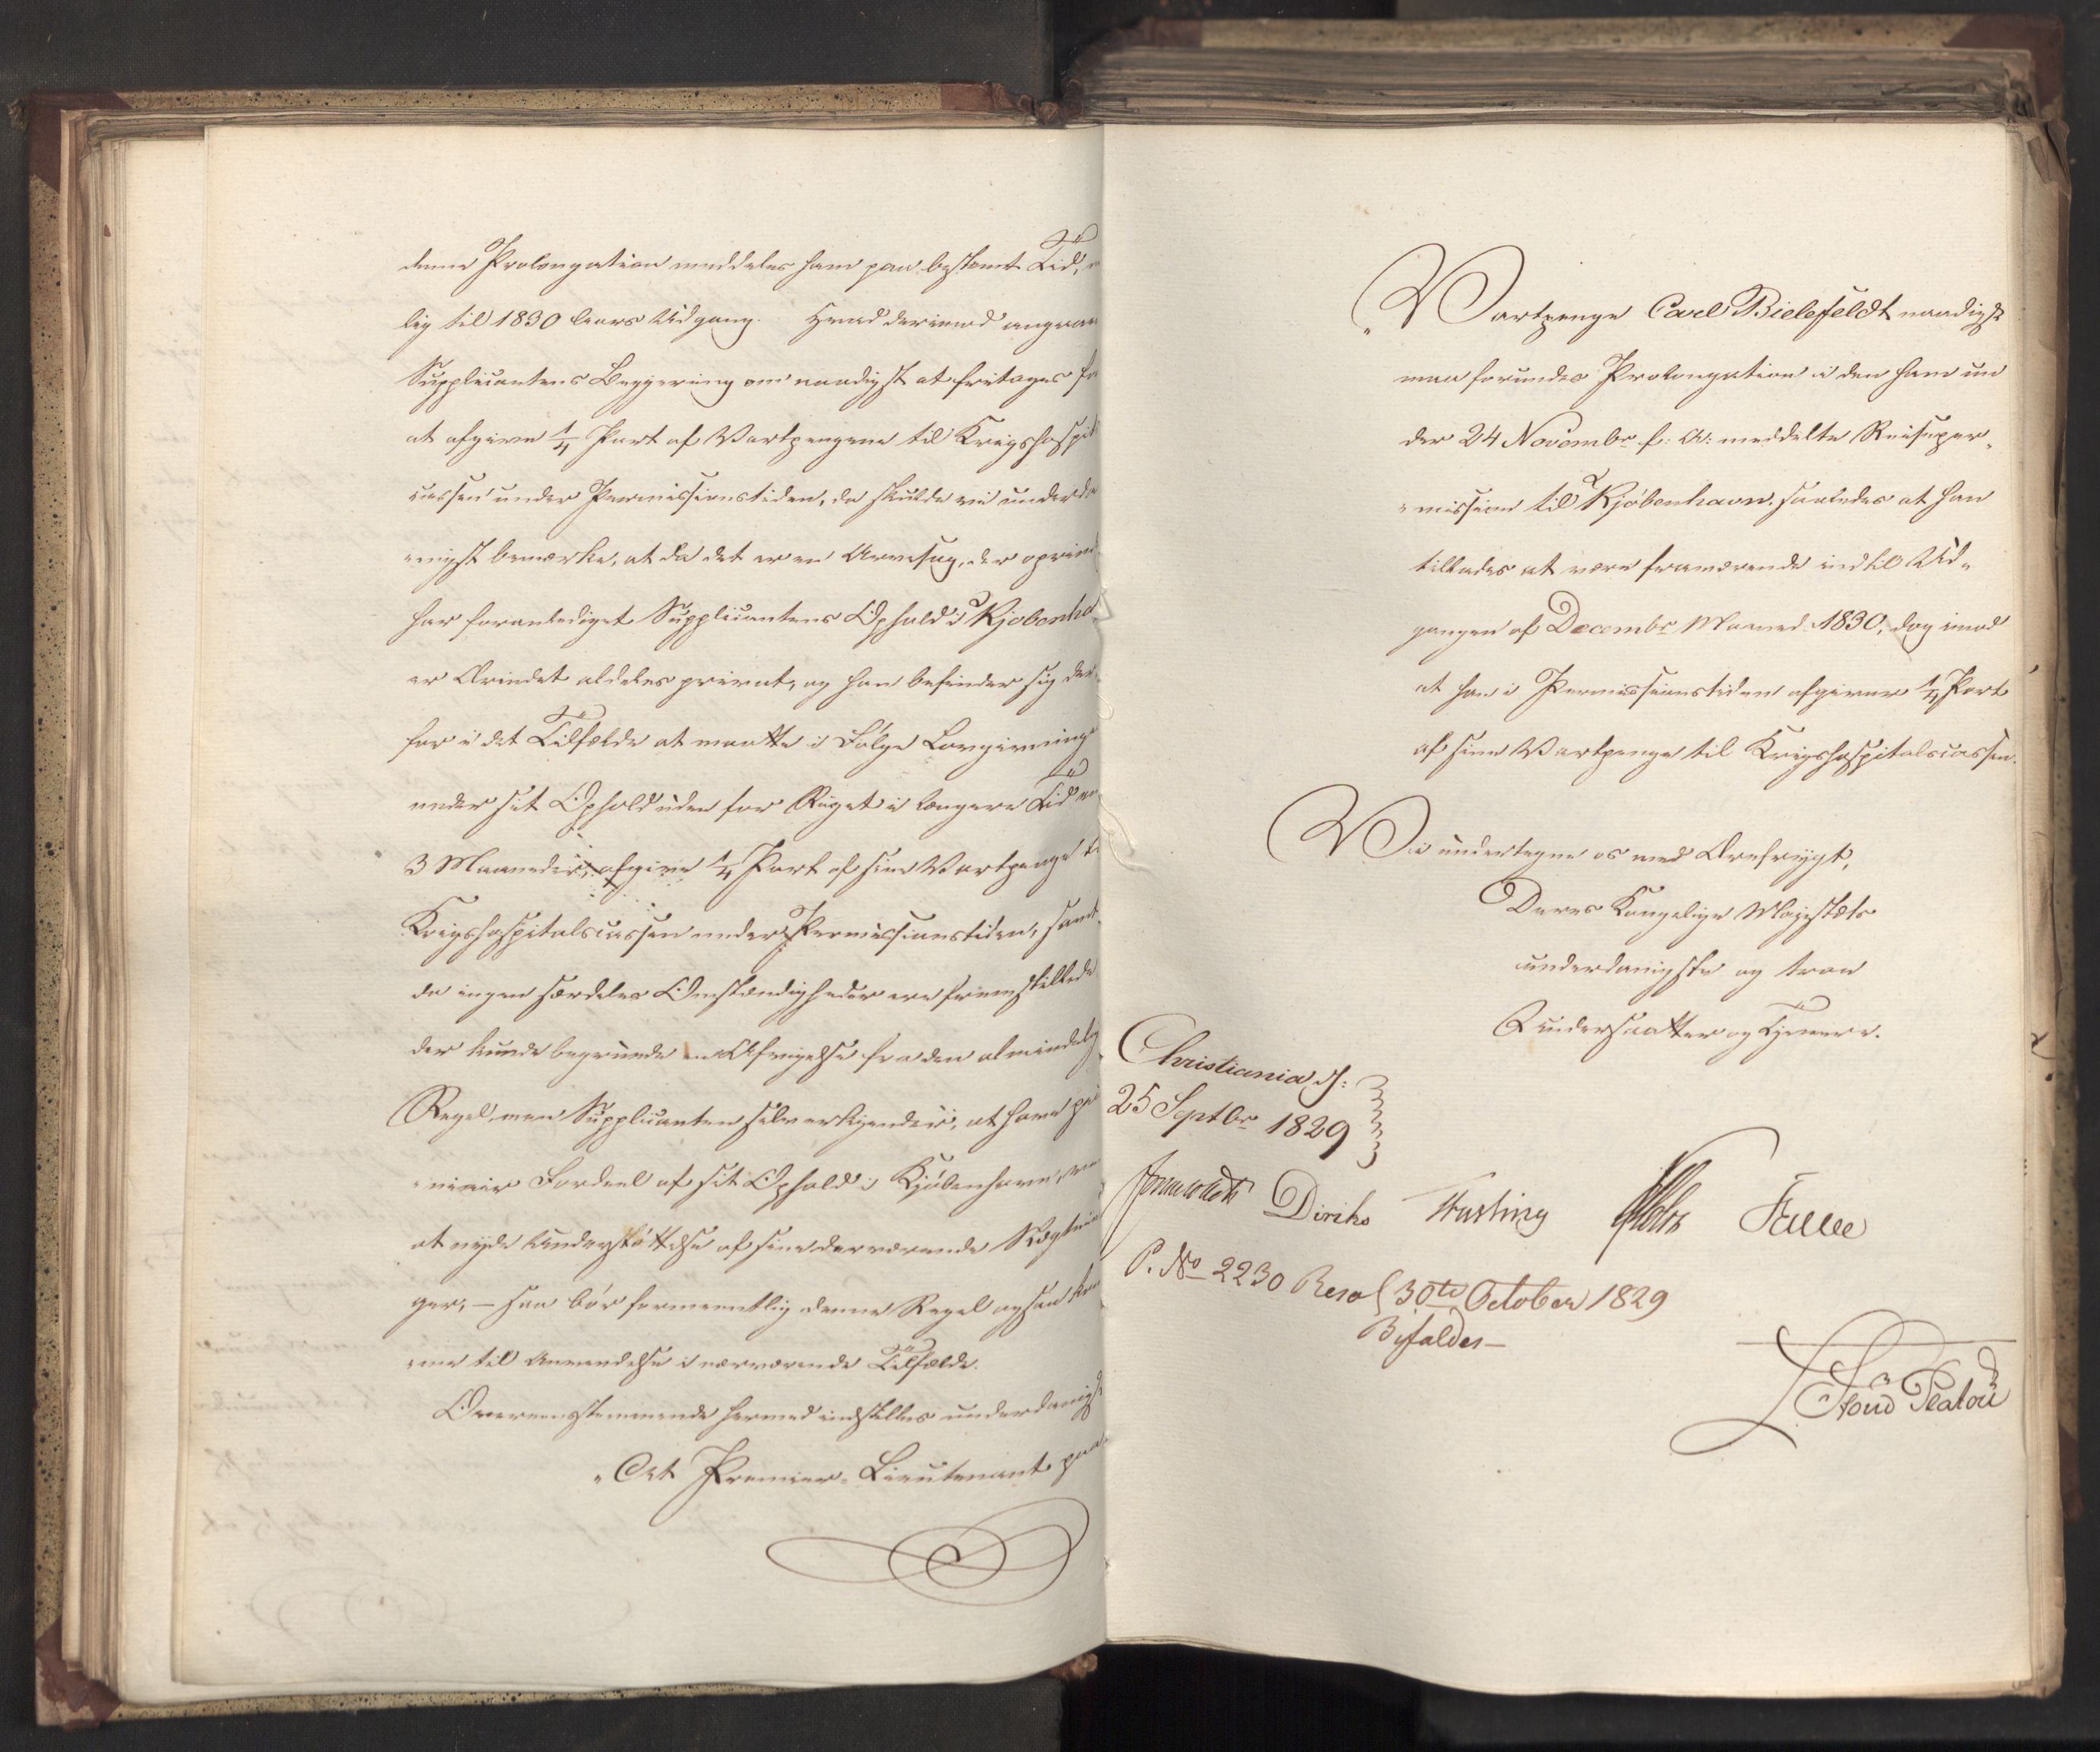 denne Prolongation meddeles ham paa bestemt Tid,
lig til 1830 Aars Udgang. Hvad derimod angaaer
Supplicantens Begjering om naadigst at fritages
at afgive 1/4 Part af Vartpengene til Krigshospit
cassen under Permissionstiden, da skulde vi underda
„nigst bemærke, at da det er en Arvesag, der oprind
har foranlediget Supplicantens Ophold i Kjøbenha
er Ærindet aldeles privat, og han befinder sig der„
for i det Tilfælde at maatte i Følge Lovgivning
under sit Ophold uden for Riget i længere Tid
3 Maaneder, afgive 1/4 Part af sine Vartpenge
Krigshospitalscassen under Permissionstiden, samt
da ingen særdeles Omstændigheder ere fremstillede
der kunde begrunde en Afvigelse fra den almindelig
Regel, men Supplicanten selv erkjender, at have
Fordeel af sit Ophold i Kjøbenhavn,
at nyde Understøttelse af sine derværende Slægtnin
ger, — saa bør formeentlig denne Regel ogsaa
„me til Anvendelse i nærværende Tilfælde.
Overeensstemmende hermed indstilles underdanigst
„At Premier-Lieutenant paa
„Vartpenge Carl Bielefeldt naadigst
maa forundes Prolongation i den ham un
der 24 Novembr f: A: meddelte Reiseper„
„mission til Kjøbenhavn, saaledes at han
tillades at være fraværende indtil Ud„
gangen af Decembr Maaned 1830, dog imod
at han i Permissionstiden afgiver 1/4 Part
af sine Vartpenge til Krigshospitalscassen.
Vi undertegne os med Ærefrygt,
Deres Kongelige Majestæts
underdanigste og troe
Undersaatter og Tjenere.
Christiania d:
25 Septbr 1829
Diriks
P. No 2230 Resol 30te October 1829
Bifaldes —